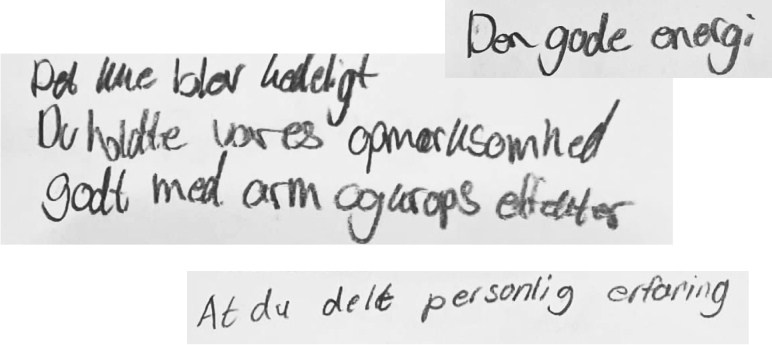 Den gode energi
Det kne blev kedeligt
Du holdte vores opmærksomhed
godt med arm og krops effekter
At du delt personlig erfaring